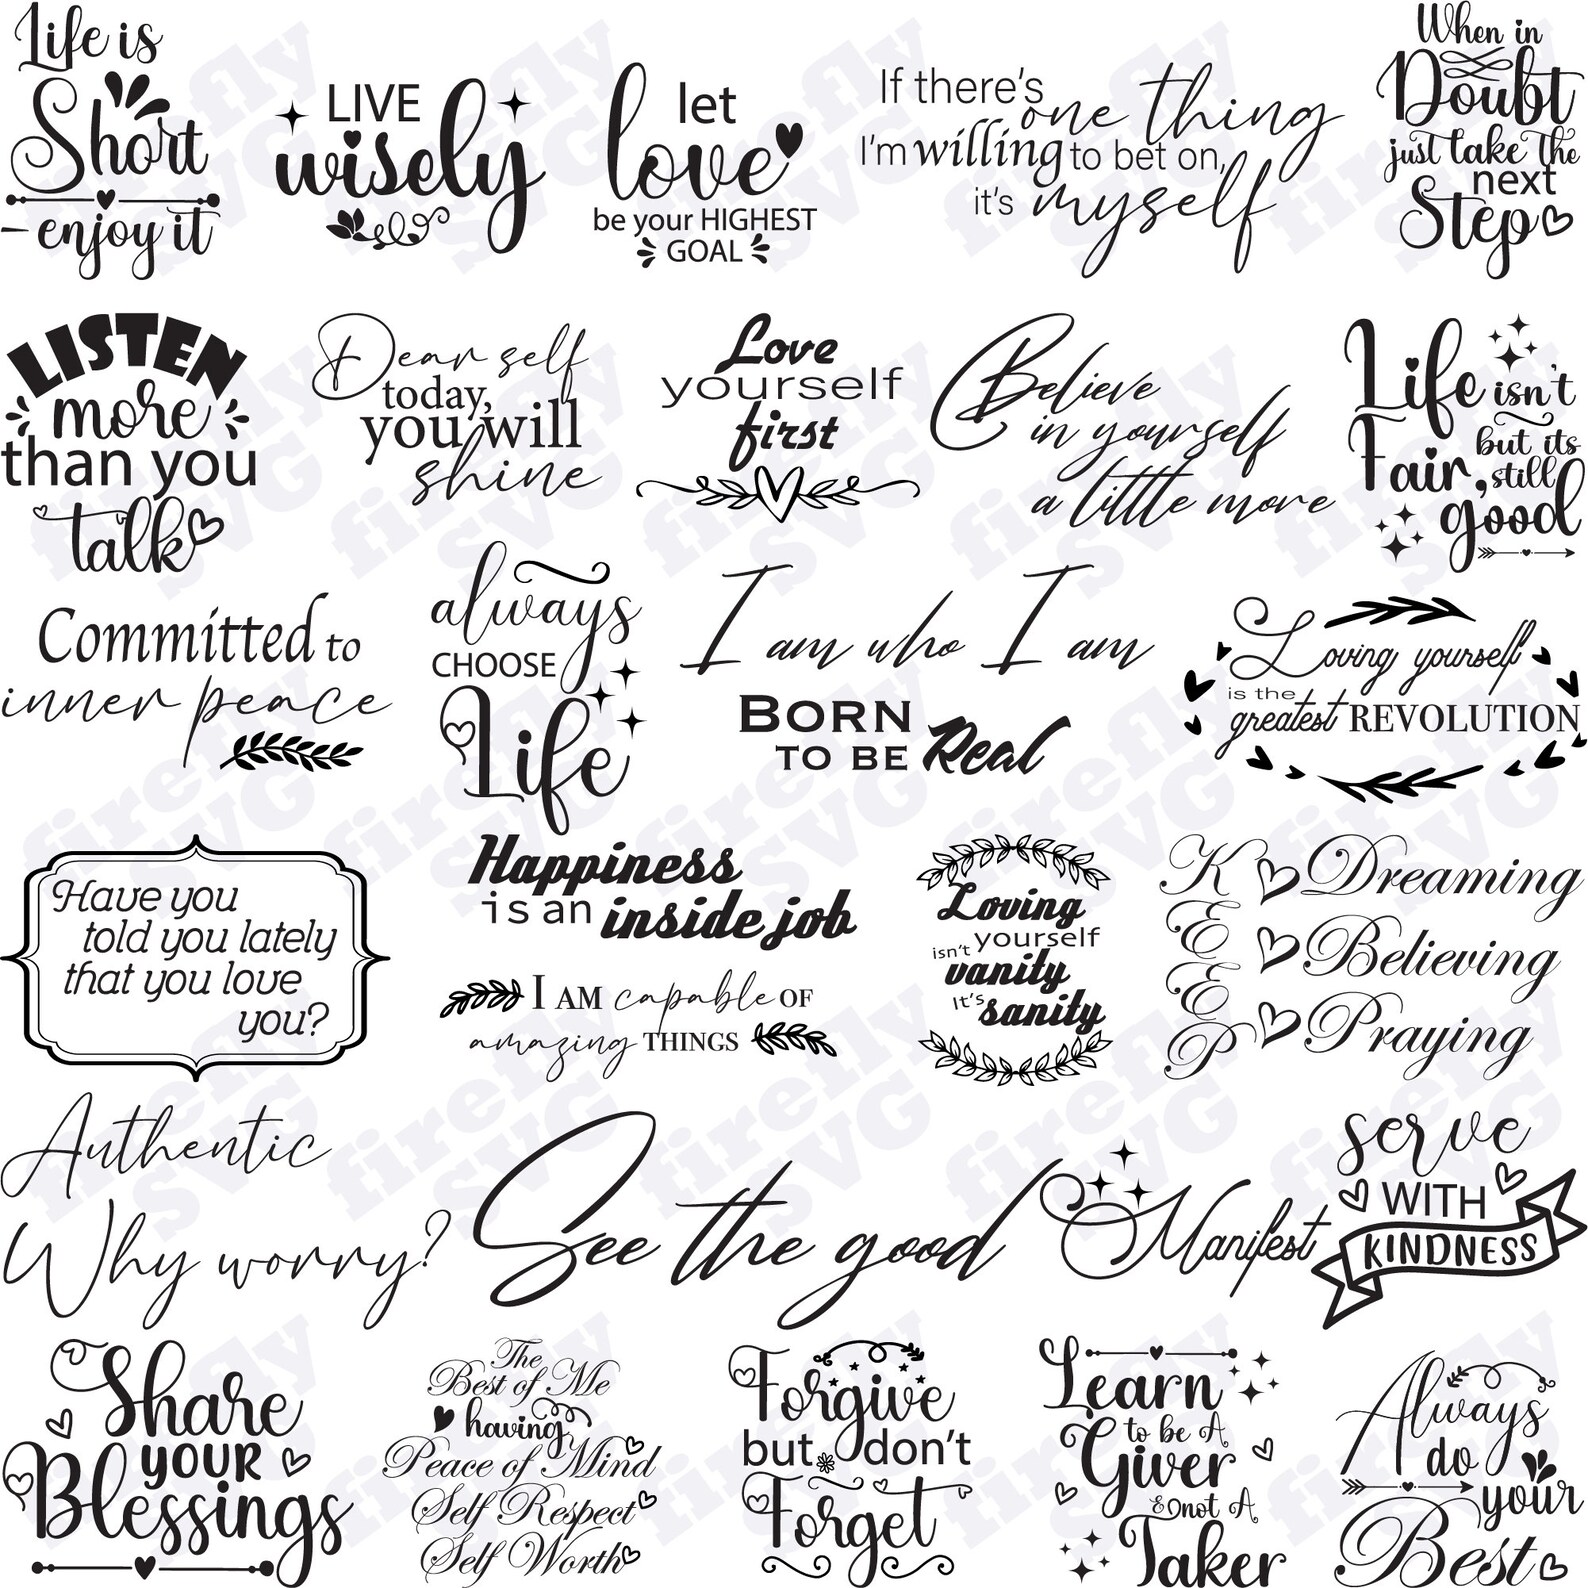 Life is
Short
enjoy it
LIVE
wisely
let
love
be your HIGHEST
GOAL
If there's one thing
I'm willing to bet on,
it's myself
When in
Doubt
just take the
next
Step
LISTEN
more
than you
talk
Dear self
today,
you will
shine
Love
yourself
first
Believe
in yourself
a little more
Life isn't
but its
Fair, still
good
Committed to
inner peace
always
CHOOSE
Life
I am who I am
BORN
TO BE Real
Loving yourself
is the
greatest REVOLUTION
Have you
told you lately
that you love
you?
Happiness
is an inside job
I AM capable OF
amazing THINGS
Loving
isn't yourself
vanity
It's sanity
KEEP
Dreaming
Believing
Praying
Authentic
Why worry?
See the good
Manifest
serve
WITH
KINDNESS
Share
YOUR
Blessings
The
Best of Me
having
Peace of Mind
Self Respect
Self Worth
Forgive
but don't
Forget
Learn
to be A
Giver
& not A
Taker
Always
do
your
Best
firefly
SVG